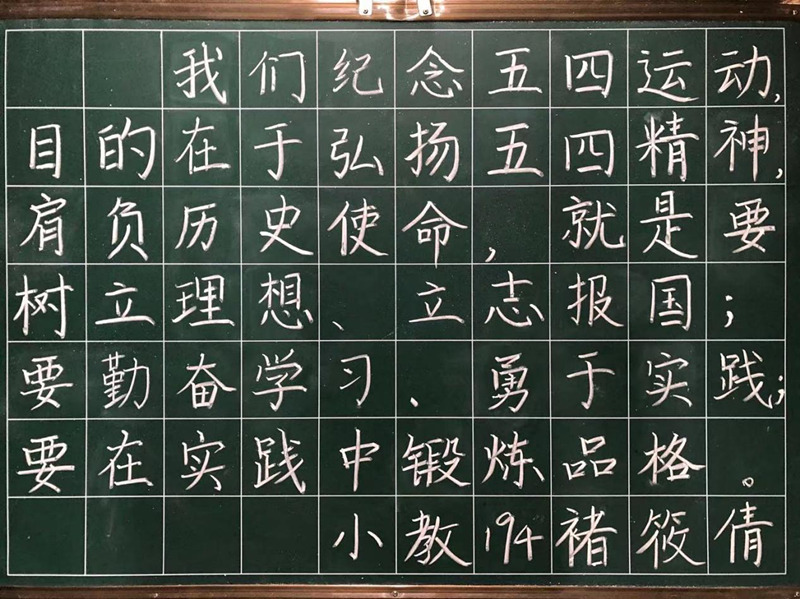 我们纪念五四运动,
目的在于弘扬五四精神,
肩负历史使命,就是要
树立理想、立志报国;
要勤奋学习、勇于实践;
要在实践中锻炼品格。
小教194褚筱倩